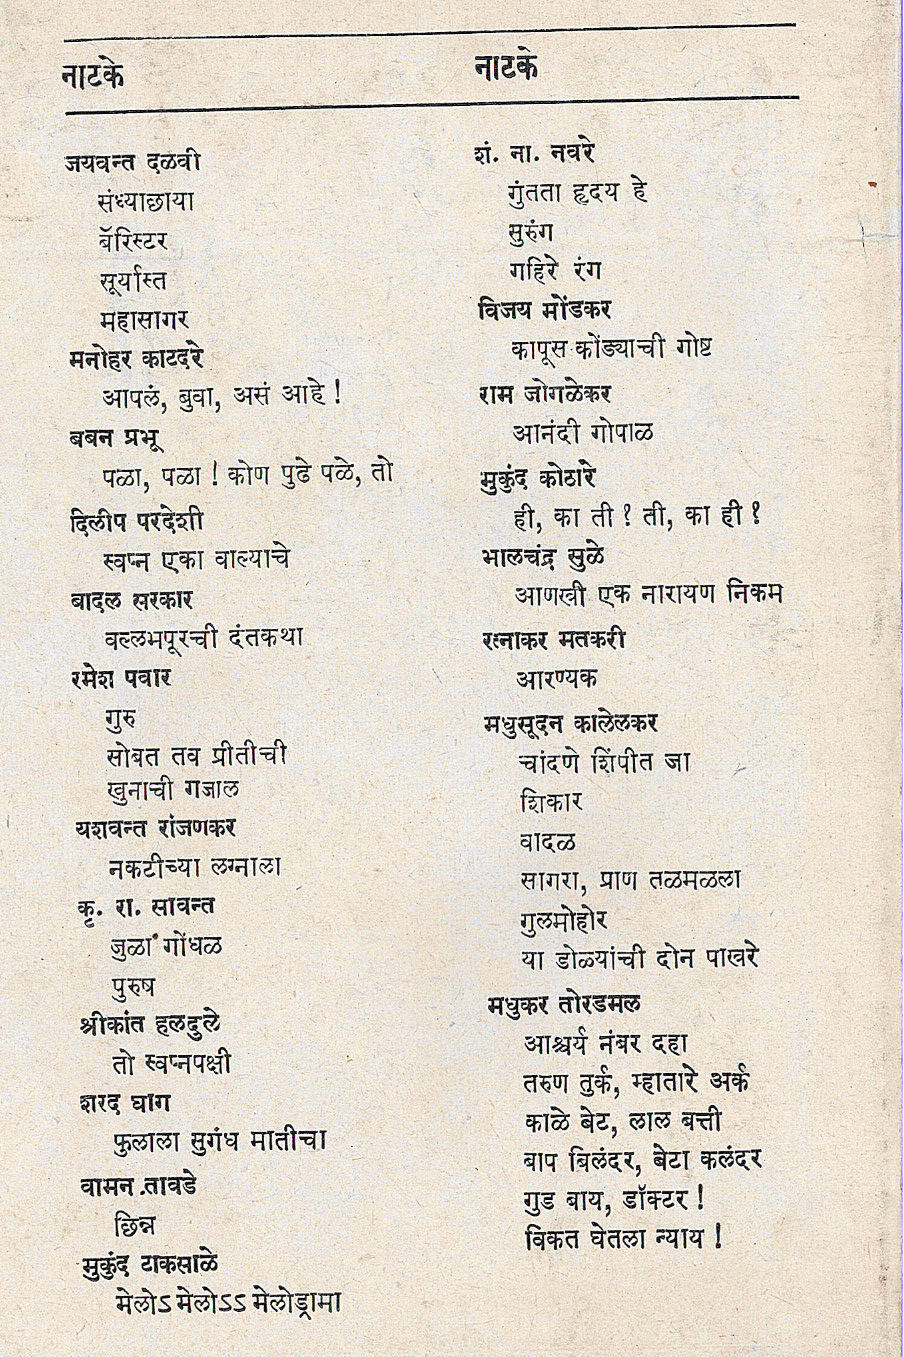 नाटके
जयवन्त दळवी
संध्याछाया
बॅरिस्टर
सूर्यास्त
महासागर
मनोहर काटदरे
आपलं, बुवा, असं आहे !
बबन प्रभू
पळा, पळा ! कोण पुढे पळे, तो
दिलीप परदेशी
स्वप्न एका वाल्याचे
बादल सरकार
वल्लभपूरची दंतकथा
रमेश पवार
गुरु
सोबत तव प्रीतीची
खुनाची गजाल
यशवन्त रांजणकर
नकटीच्या लग्नाला
कृ. रा. सावन्त
जुळा गोंधळ
पुरुष
श्रीकांत हलदुले
तो स्वप्नपक्षी
शरद घाग
फुलाला सुगंध मातीचा
वामन तावडे
छिन्न
मुकुंद टाकसाळे
मेलोऽ मेलोऽऽ मेलोड्रामा
नाटके
शं. ना. नवरे
गुंतता हृदय हे
सुरुंग
गहिरे रंग
विजय मोंडकर
कापूस कोंड्याची गोष्ट
राम जोगळेकर
आनंदी गोपाळ
मुकुंद कोठारे
ही, का ती ? ती, का ही ?
भालचंद्र सुळे
आणखी एक नारायण निकम
रत्नाकर मतकरी
आरण्यक
मधुसूदन कालेलकर
चांदणे शिंपीत जा
शिकार
वादळ
सागरा, प्राण तळमळला
गुलमोहोर
या डोळ्यांची दोन पाखरे
मधुकर तोरडमल
आश्चर्य नंबर दहा
तरुण तुर्क, म्हातारे अर्क
काळे बेट, लाल बत्ती
बाप बिलंदर, बेटा कलंदर
गुड बाय, डॉक्टर !
विकत घेतला न्याय !